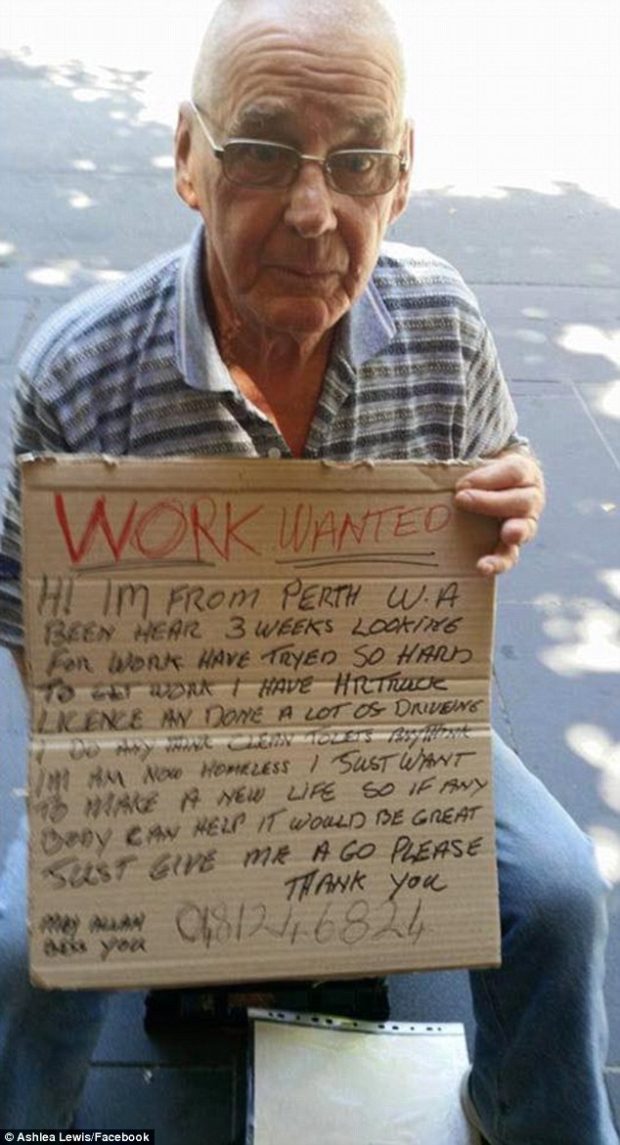 WORK WANTED
HI IM FROM PERTH W.A
BEEN HEAR 3 WEEKS LOOKING
FOR WORK HAVE TRYED SO HARD
TO GET WORK I HAVE HR TRUCK
LICENCE AN DONE A LOT OF DRIVEING
I DO ANY THINK CLEAN TOLETS ANYTHINK
AM NOW HOMELESS I JUST WANT
TO MAKE A NEW LIFE SO IF ANY
BODY CAN HELP IT WOULD BE GREAT
JUST GIVE ME A GO PLEASE
THANK YOU
MAY ALLAH
BESS YOU
0481246824
© Ashlea Lewis/Facebook